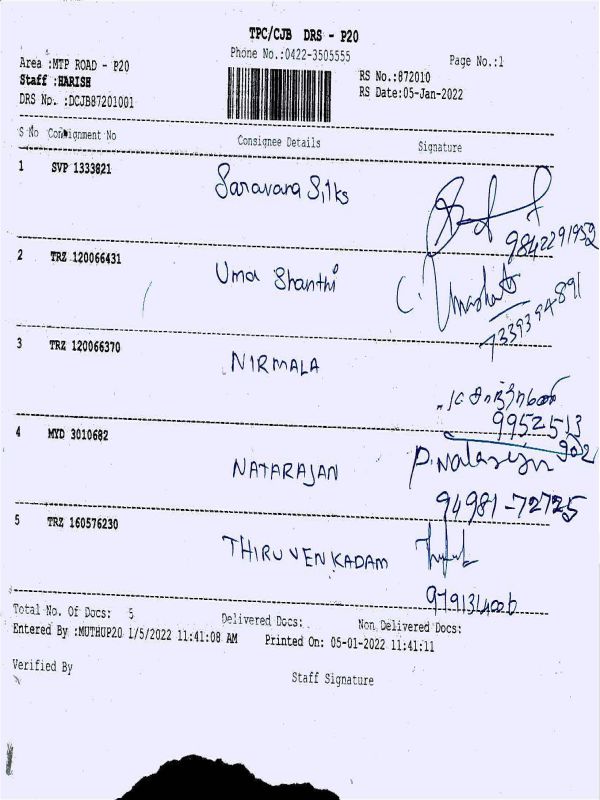 TPC/CJB DRS - P20
Phone No.:0422-3505555
Page No.:1
Area :MTP ROAD - P20
Staff :HARISH
DRS No. :DCJB87201001
RS No.:872010
RS Date:05-Jan-2022
S No Consignment No Consignee Details Signature
1 SVP 1333821 Saravana Silks
9842291952
2 TRZ 120066431 Uma Shanthi
C. Umashanthi
7339394891
3 TRZ 120066370 NIRMALA
9952513
902
4 MYD 3010682 NATARAJAN
P. Natarajan
94981-72725
5 TRZ 160576230 THIRUVENKADAM
Total No. Of Docs: 5 Delivered Docs: Non Delivered Docs:
Entered By :MUTHUP20 1/5/2022 11:41:08 AM Printed On: 05-01-2022 11:41:11
Verified By Staff Signature